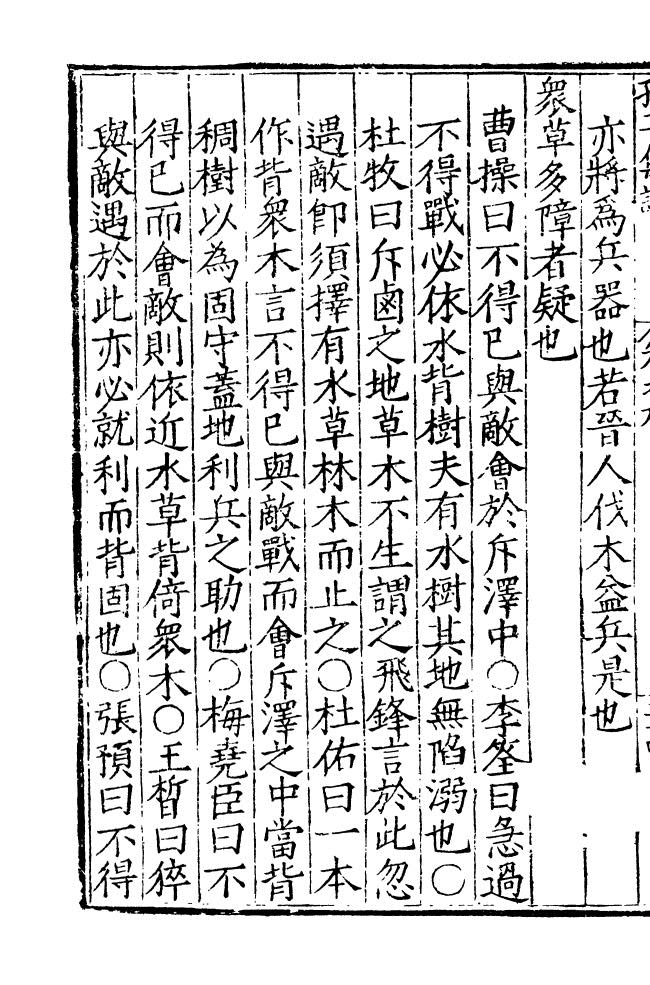 亦將爲兵器也若晉人伐木益兵是也
衆草多障者疑也
曹操曰不得已與敵會於斥澤中○李筌曰急過
不得戰必依水背樹夫有水樹其地無陷溺也○
杜牧曰斥鹵之地草木不生謂之飛鋒言於此忽
遇敵卽須擇有水草林木而止之○杜佑曰一本
作背衆木言不得已與敵戰而會斥澤之中當背
稠樹以為固守蓋地利兵之助也○梅堯臣曰不
得已而會敵則依近水草背倚衆木○王晳曰猝
與敵遇於此亦必就利而背固也○張預曰不得